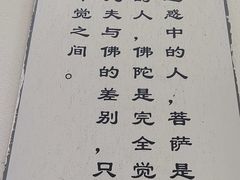 惑中的人，菩萨是
的人，佛陀是完全觉
夫与佛的差别，只
觉之间。